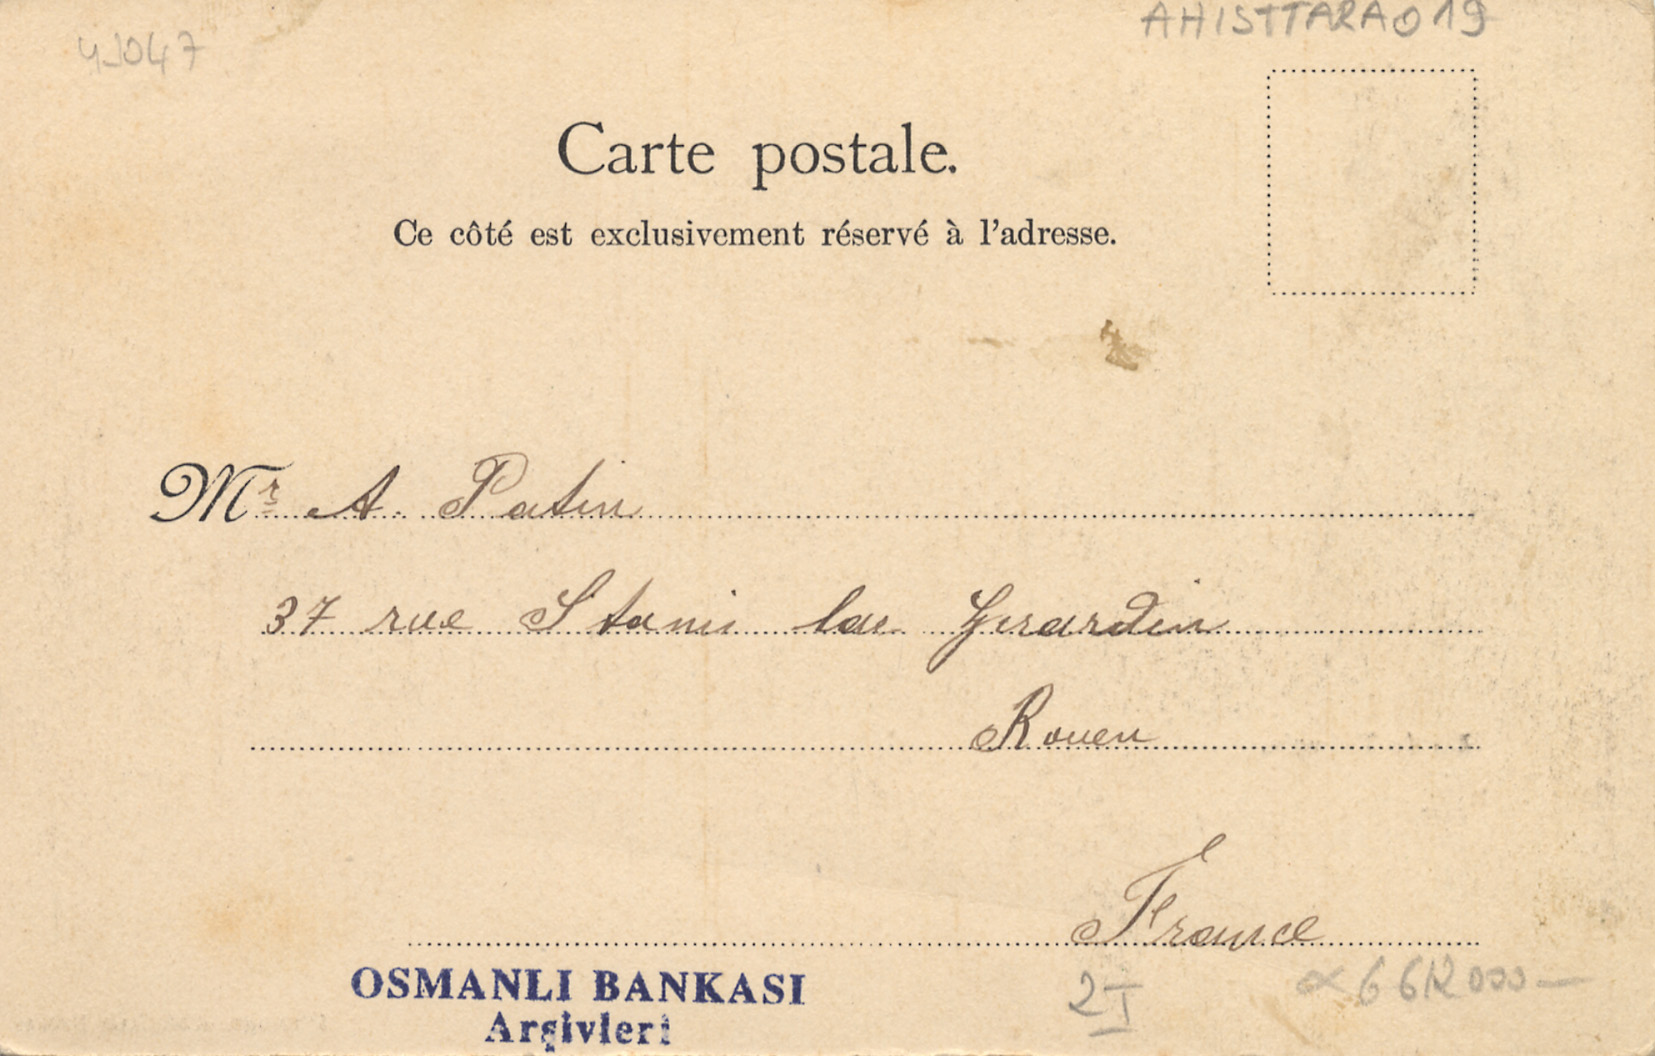 AHISTTARA019
Carte postale.
Ce côté est exclusivement réservé à l'adresse.
Mr A. Patin
37 rue Stanis las Girardin
Rouen
France
OSMANLI BANKASI
Arşivleri